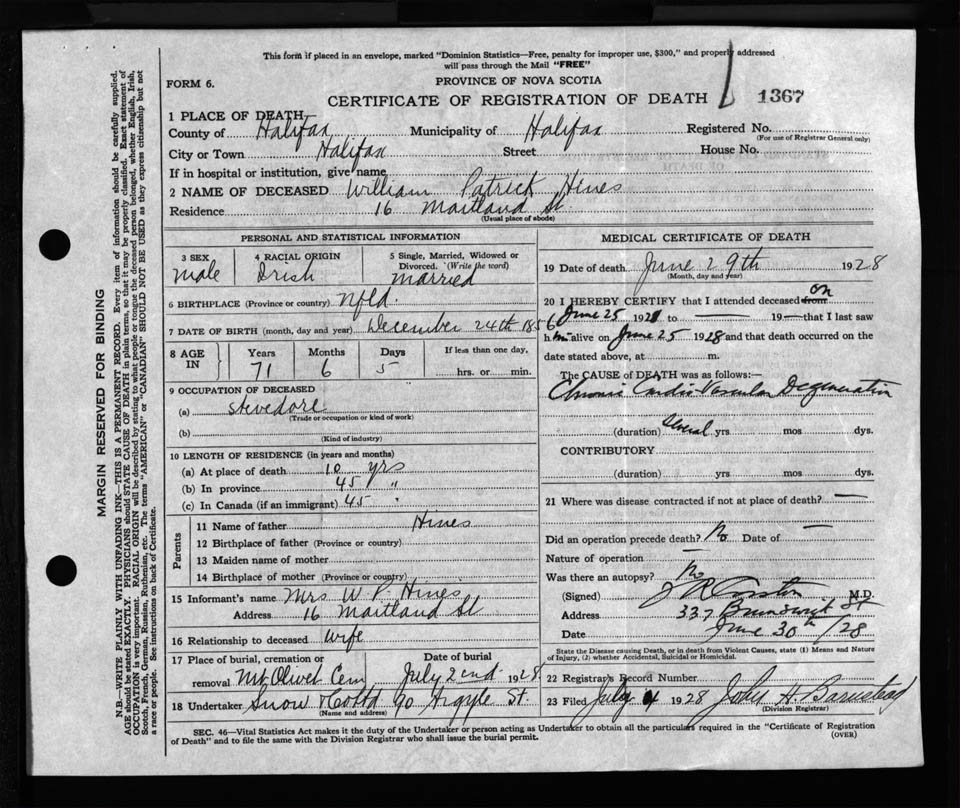 This form if placed in an envelope, marked "Dominion Statistics—Free, penalty for improper use, $300," and properly addressed
will pass through the Mail "FREE"
FORM 6.
PROVINCE OF NOVA SCOTIA
CERTIFICATE OF REGISTRATION OF DEATH
1367
1 PLACE OF DEATH
County of Halifax Municipality of Halifax Registered No.
(For use of Registrar General only)
City or Town Halifax Street House No.
If in hospital or institution, give name
2 NAME OF DECEASED William Patrick Hines
Residence 16 Maitland St.
(Usual place of abode)
PERSONAL AND STATISTICAL INFORMATION
3 SEX 4 RACIAL ORIGIN 5 Single, Married, Widowed or
Divorced. (Write the word)
male Irish Married
6 BIRTHPLACE (Province or country) Nfld.
7 DATE OF BIRTH (month, day and year) December 24th 1856
8 AGE IN Years Months Days If less than one day,
71 6 5 hrs. or min.
9 OCCUPATION OF DECEASED
(a) Stevedore
(Trade or occupation or kind of work)
(b)
(Kind of industry)
10 LENGTH OF RESIDENCE (in years and months)
(a) At place of death 10 yrs
(b) In province 45 "
(c) In Canada (if an immigrant) 45 "
Parents
11 Name of father Hines
12 Birthplace of father (Province or country)
13 Maiden name of mother
14 Birthplace of mother (Province or country)
15 Informant's name Mrs W P Hines
Address 16 Maitland St
16 Relationship to deceased wife
17 Place of burial, cremation or Date of burial
removal Mt Olivet Cem July 2nd 1928
18 Undertaker Snow 90 Argyle St
(Name and address)
MEDICAL CERTIFICATE OF DEATH
19 Date of death June 29th 1928
(Month, day and year)
20 I HEREBY CERTIFY that I attended deceased from on
June 25 192 to — 19— that I last saw
him alive on June 25 1928 and that death occurred on the
date stated above, at m.
The CAUSE of DEATH was as follows:—
Chronic Cardio Vascular Degeneration
(duration) Several yrs mos dys.
CONTRIBUTORY
(duration) yrs mos dys.
21 Where was disease contracted if not at place of death? —
Did an operation precede death? No Date of —
Nature of operation —
Was there an autopsy? No
(Signed) J R M.D.
Address 337 Brunswick St
Date June 30th /28
State the Disease causing Death, or in death from Violent Causes, state (1) Means and Nature
of Injury, (2) whether Accidental, Suicidal or Homicidal.
22 Registrar's Record Number
23 Filed July 4 1928 John H. Barnstead
(Division Registrar)
SEC. 46—Vital Statistics Act makes it the duty of the Undertaker or person acting as Undertaker to obtain all the particulars required in the "Certificate of Registration
of Death" and to file the same with the Division Registrar who shall issue the burial permit.
(OVER)
MARGIN RESERVED FOR BINDING
N.B.—WRITE PLAINLY WITH UNFADING INK—THIS IS A PERMANENT RECORD. Every item of information should be carefully supplied.
AGE should be stated EXACTLY. PHYSICIANS should STATE CAUSE OF DEATH in plain terms, so that it may be properly classified. Exact statement of
OCCUPATION is very important. RACIAL ORIGIN will be described by stating to what people or tongue the deceased person belonged, whether English, Irish,
Scotch, French, German, Russian, Ruthenian, etc. The terms "AMERICAN" or "CANADIAN" SHOULD NOT BE USED as they express citizenship but not
a race or people. See instructions on back of Certificate.